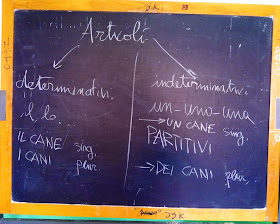 Articoli
determinativi
il, lo...
IL CANE sing.
I CANI plur.
indeterminativi
un-uno-una
→ UN CANE sing.
PARTITIVI
→ DEI CANI plur.